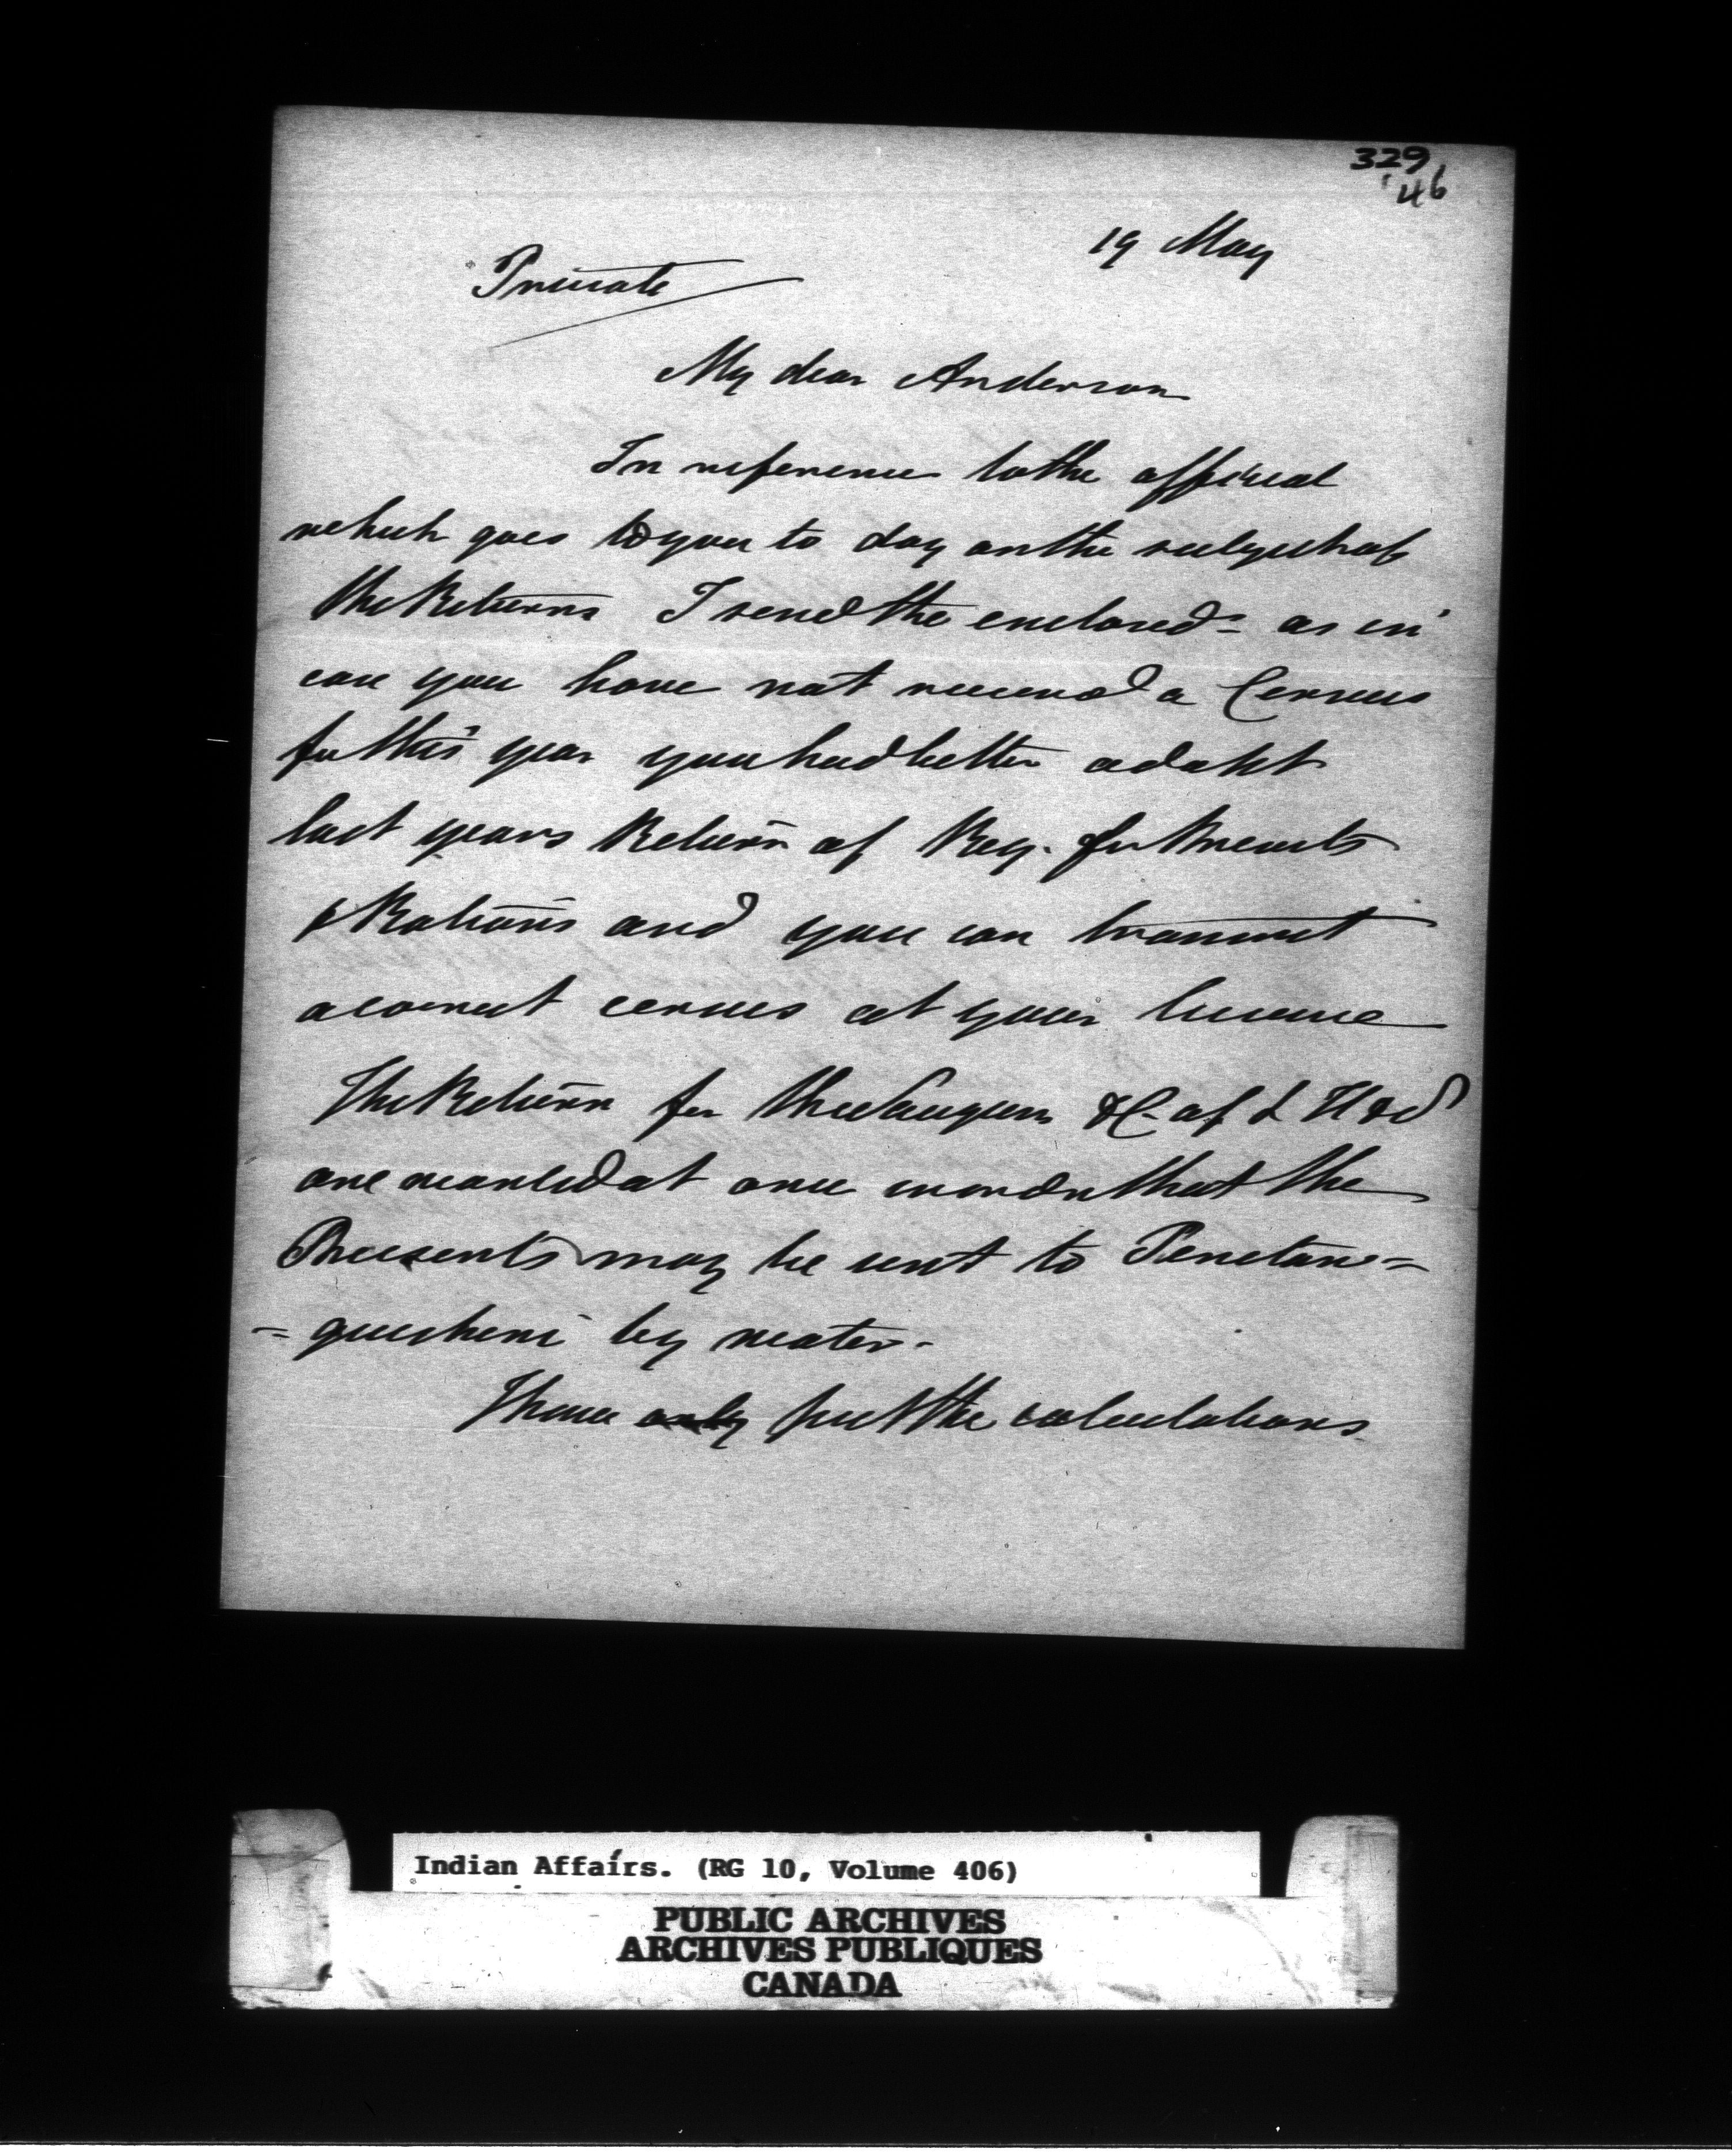 329
'46
19 May
Private
My dear Anderson
In reference to the official
which goes to you to day on the subject of
the Returns I send the enclosed - as in
case you have not received a Census
for this year you had better adopt
last years Return of Req. for Presents
& Rations and you can transmit
a correct census at your leisure
The Return for the Saugeen &c of L H
are wanted at once in order that the
Presents may be sent to Penetan=
=guishene by water -
I have only put the calculations
Indian Affairs. (RG 10, Volume 406)
PUBLIC ARCHIVES
ARCHIVES PUBLIQUES
CANADA